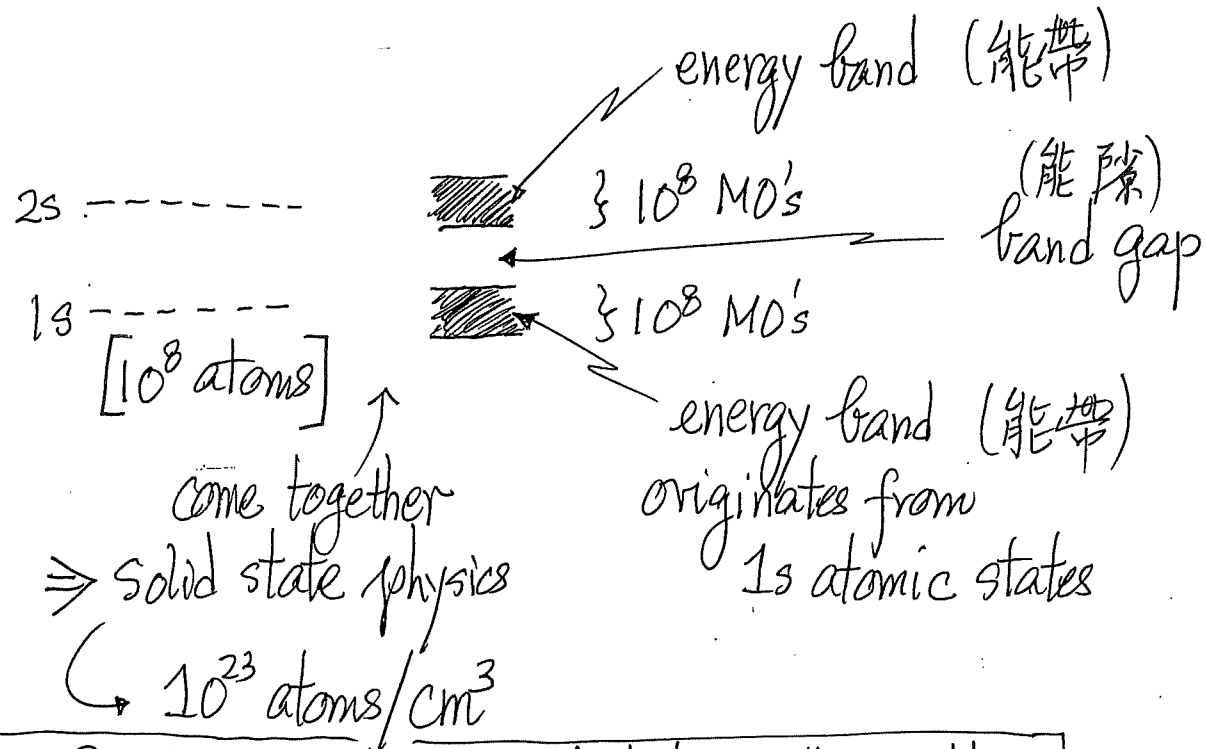 energy band (能帶)
2s } 10⁸ MO's
(能隙)
band gap
1s } 10⁸ MO's
[10⁸ atoms]
energy band (能帶)
originates from
1s atomic states
come together
⇒ solid state physics
10²³ atoms/cm³